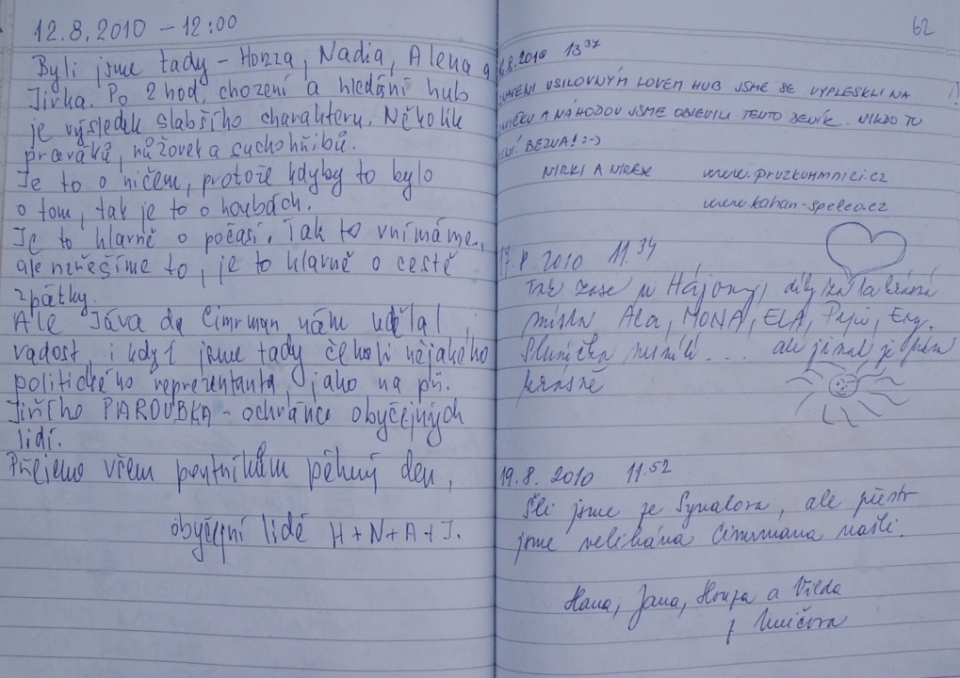 12.8.2010 – 12:00
Byli jsme tady – Honza, Nadia, Alena a
Jirka. Po 2 hod. chození a hledání hub
je výsledek slabšího charakteru. Několik
praváků, růžovek a suchohřibů.
Je to o ničem, protože kdyby to bylo
o tom, tak je to o houbách.
Je to hlavně o počasí. Tak to vnímáme,
ale neřešíme to, je to hlavně o cestě
zpátky.
Ale Jára da Cimrman nám udělal
radost, i když jsme tady čekali nějakého
politického reprezentanta, jako na př.
Jiřího PAROUBKA – ochránce obyčejných
lidí.
Přejeme všem poutníkům pěkný den,
obyčejní lidé H+N+A+J.
62
6.8.2010 13 37
USILOVNÝM LOVEM HUB JSME SE VYPLESKLI NA
A NÁHODOU JSME OBJEVILI TENTO DENÍK. NIKDO TU
NENÍ. BEZVA! :-)
NIRKI A www.pruzkumnici.cz
www.kahan-speleo.cz
17. 8 2010 11.34
zase u Hájony, díky za ta krásná
místa Ála, MONA, ELA, Pepi,
Slunička není .... ale jinak je
krásně
19.8.2010 11.52
Šli jsme ze Synalova, ale přesto
jsme velikána Cimrmana našli.
Hana, Jana, Honza a Vilda
z Uničova